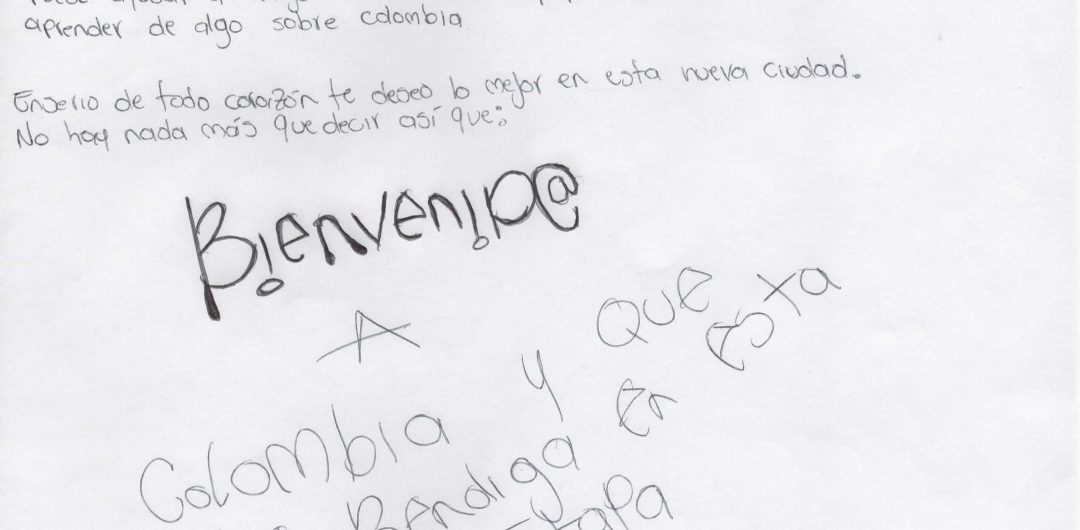 aprender de algo sobre colombia
Enserio de todo corazón te deseo lo mejor en esta nueva ciudad.
No hay nada más que decir así que:
Bienvenid@
A
Colombia y que
Bendiga en esta
etapa